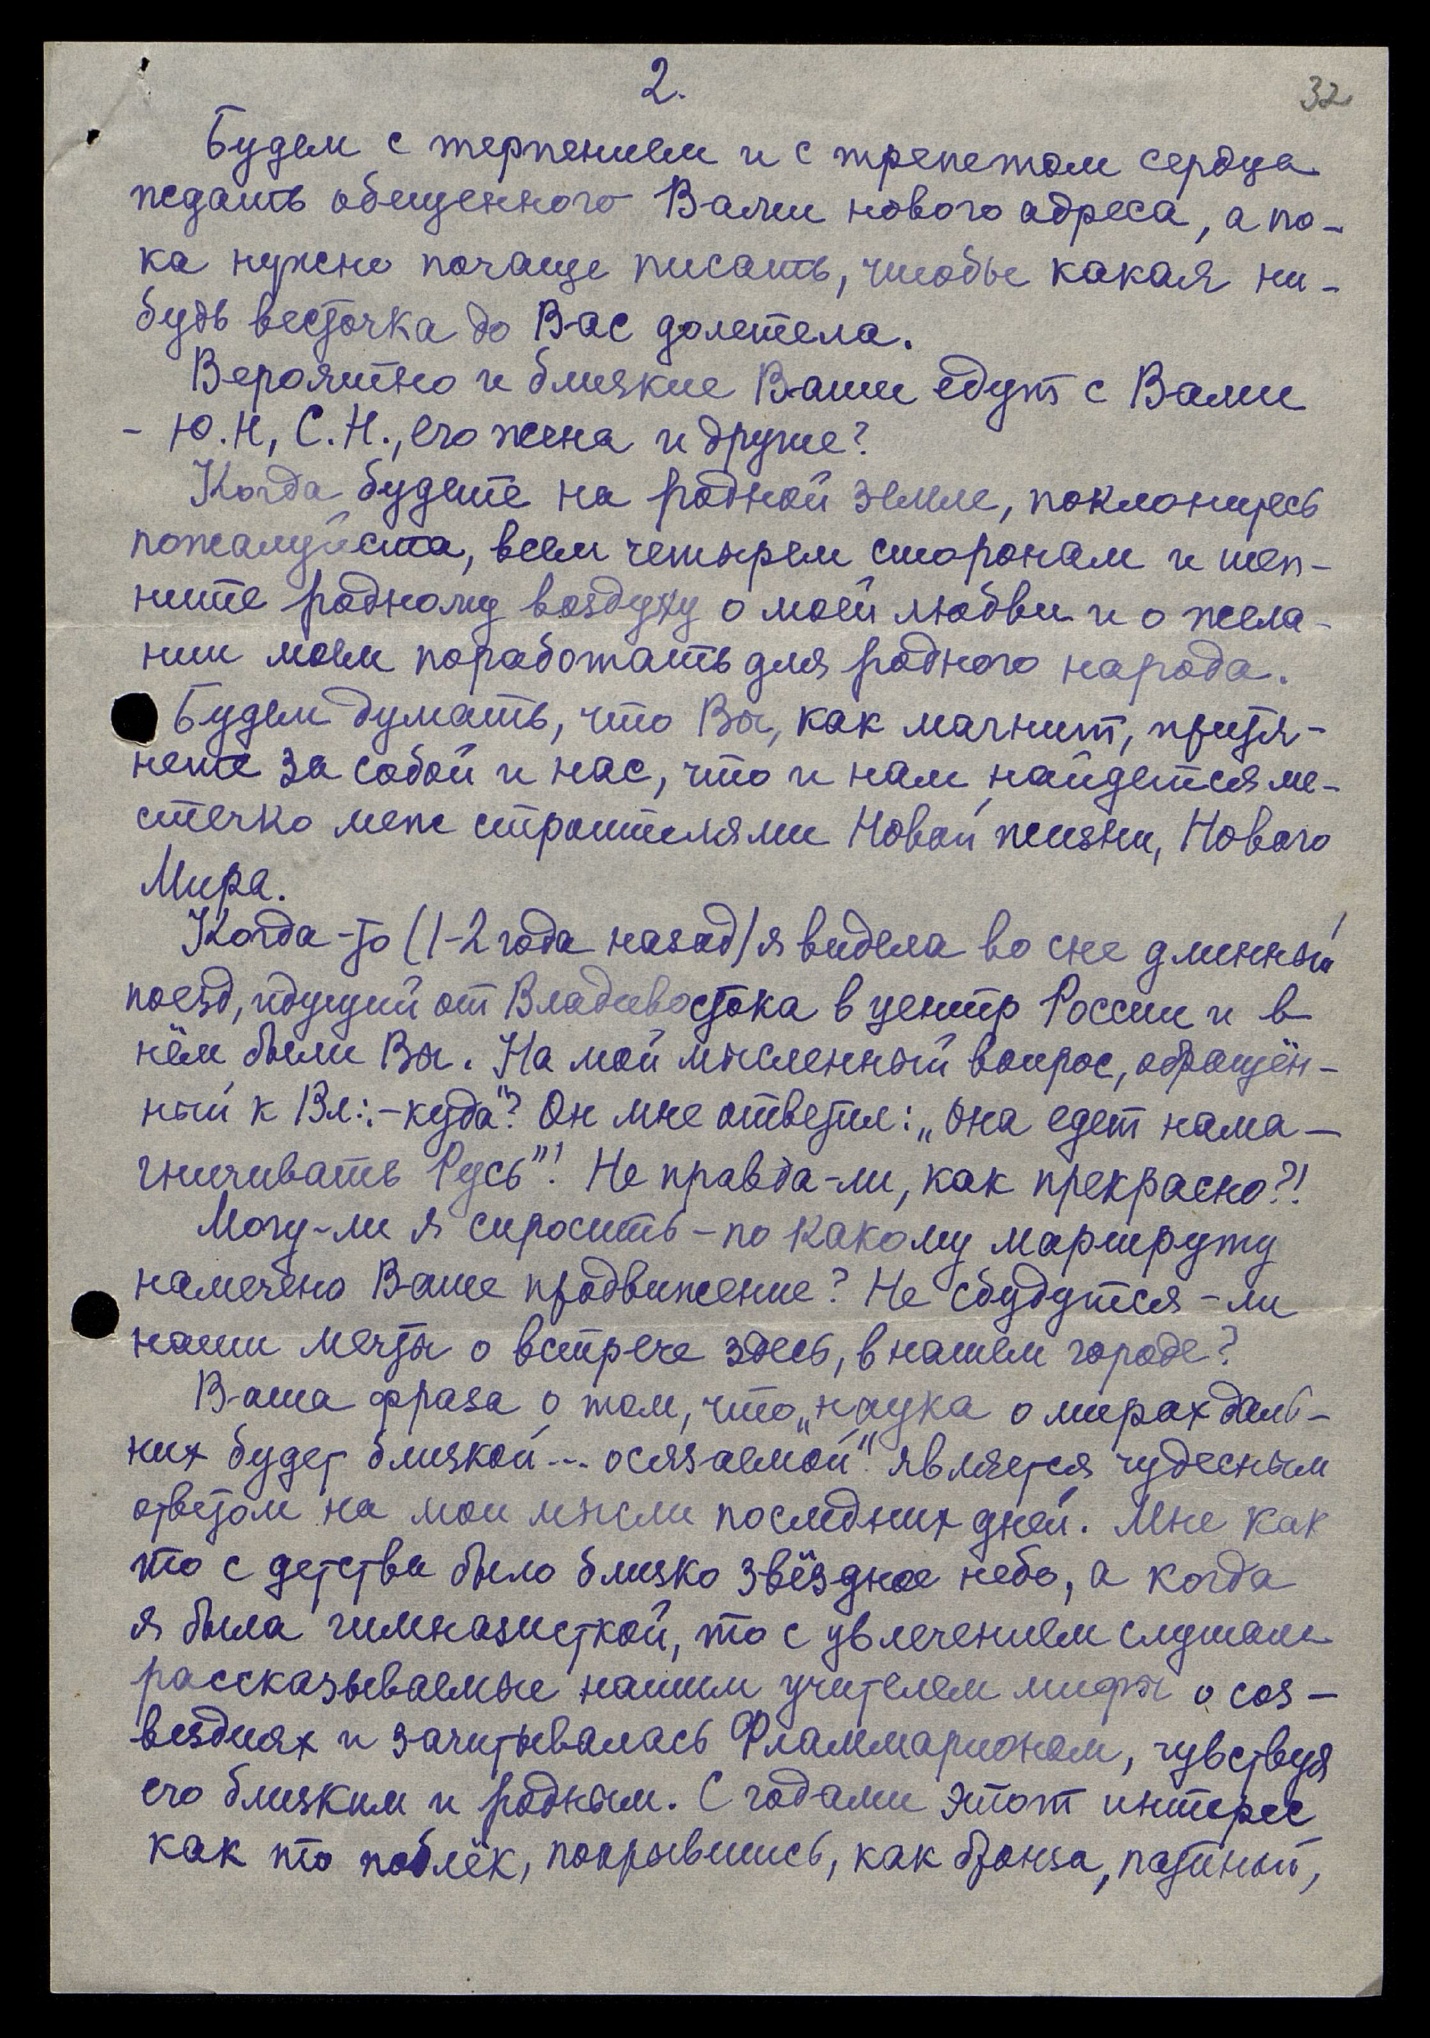 2.
32
Будем с терпением и с трепетом сердца
ждать обещенного Вами нового адреса, а по-
ка нужно почаще писать, чтобы какая ни-
будь весточка до Вас долетела.
Вероятно и близкие Ваши едут с Вами
- Ю.Н, С.Н., его жена и другие?
Когда будете на родной земле, поклонитесь
пожалуйста, всем четырем сторонам и шеп-
ните родному воздуху о моей любви и о жела-
нии моем поработать для родного народа.
Будем думать, что Вы, как магнит, притя-
нете за собой и нас, что и нам найдется ме-
стечко меж строителями Новой жизни, Нового
Мира.
Когда-то (1-2 года назад) я видела во сне длинный
поезд, идущий от Владивостока в центр России и в
нём были Вы. На мой мысленный вопрос, обращён-
ный к Вл:-куда"? Он мне ответил: „Она едет нама-
гничивать Русь"! Не правда-ли, как прекрасно?!
Могу-ли я спросить - по какому маршруту
намечено Ваше продвижение? Не сбудутся-ли
наши мечты о встрече здесь, в нашем городе?
Ваша фраза о том, что „наука о мирах даль-
них будет близкой... осязаемой" является чудесным
ответом на мои мысли последних дней. Мне как
то с детства было близко звёздное небо, а когда
я была гимназисткой, то с увлечением слушала
рассказываемые нашим учителем мифы о соз-
вездиях и зачитывалась Фламмарионом, чувствуя
его близким и родным. С годами этот интерес
как то поблёк, покрывшись, как бронза, патиной,